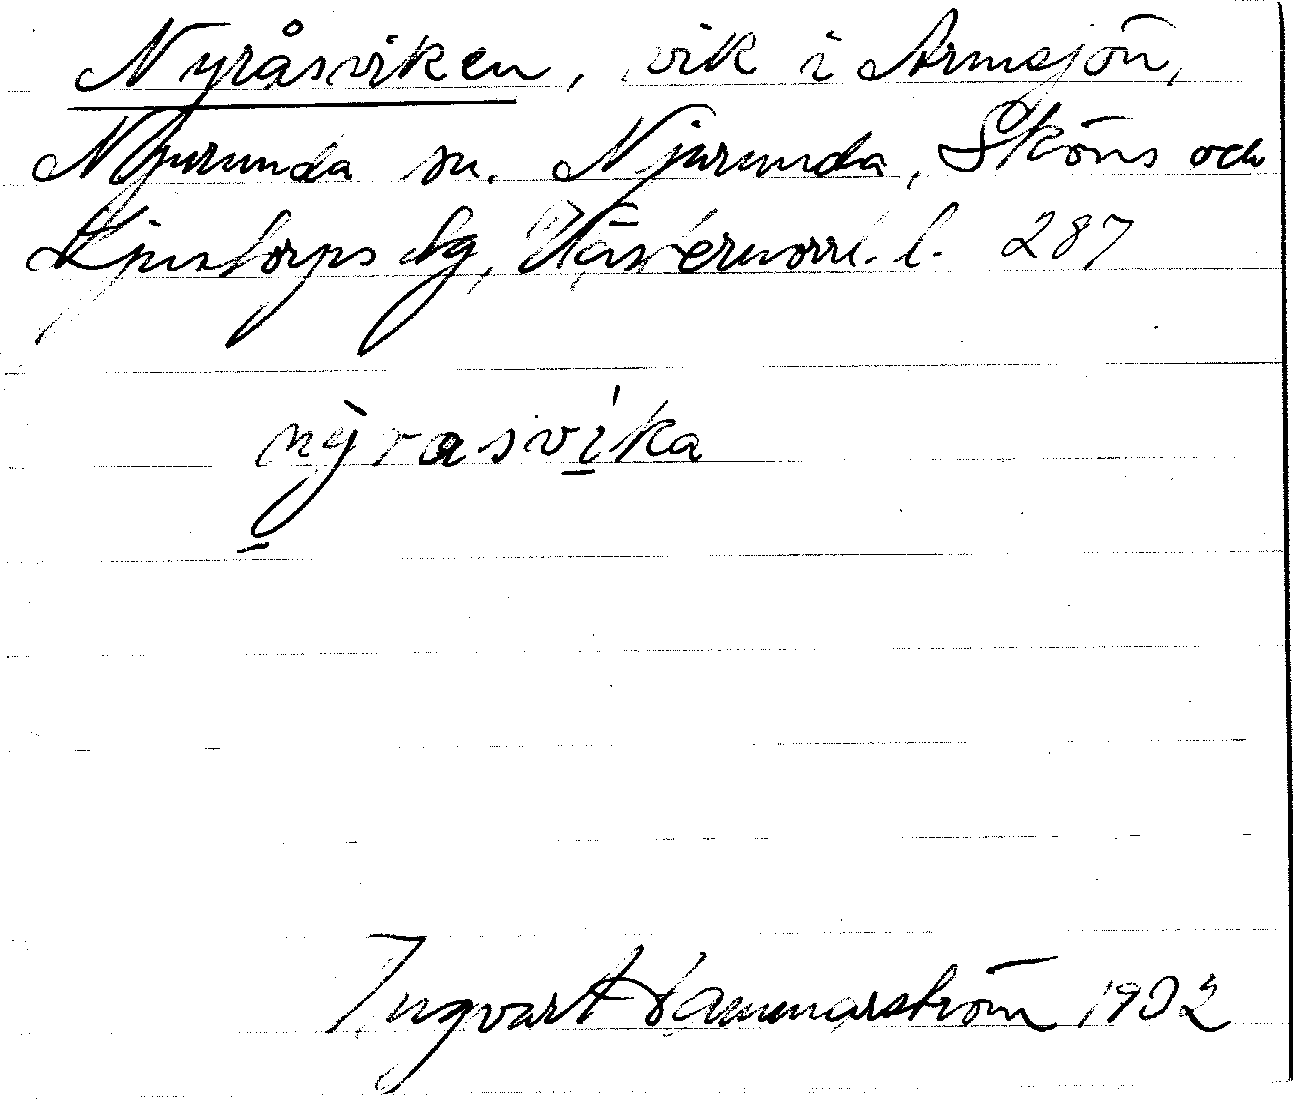 Nyråsviken, vik i Armsjön,
Njurunda sn. Njurunda, Sköns och
Ljustorps tg, Västernorrl. l. 287
nỳrasvíka
Ingvar Hammarström 1932